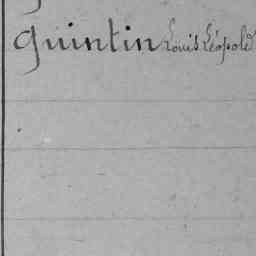 Quintin Louis Léopold